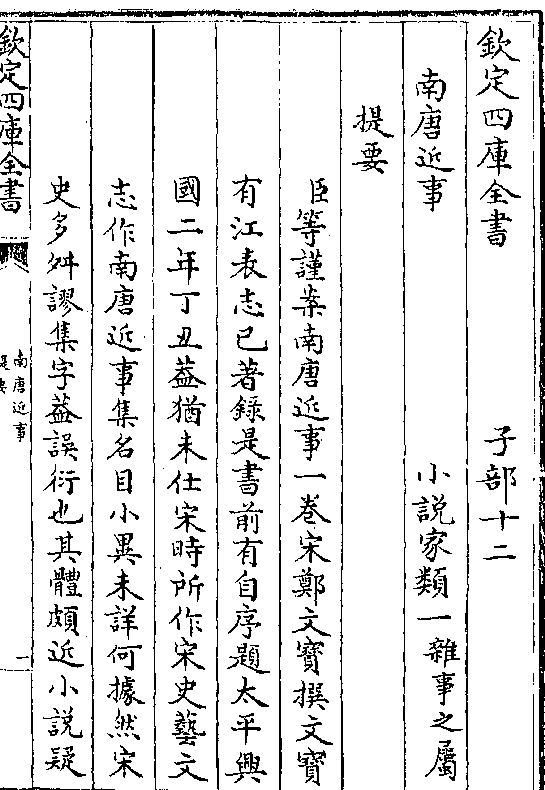 欽定四庫全書 子部十二
南唐近事 小說家類一雜事之屬
提要
臣等謹案南唐近事一卷宋鄭文寶撰文寶
有江表志已著錄是書前有自序題太平興
國二年丁丑葢猶未仕宋時所作宋史藝文
志作南唐近事集名目小異未詳何據然宋
史多舛謬集字葢誤衍也其體頗近小說疑
欽定四庫全書
南唐近事
提要
一